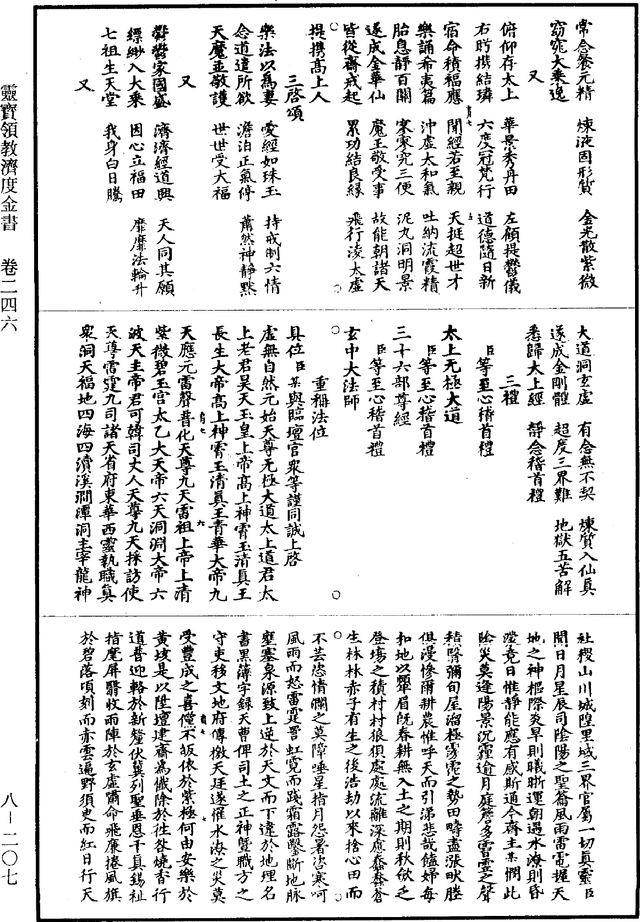 靈寶領教濟度金書　卷二四六
八—二〇七
常念餐元精　煉液固形質　金光散紫微
窈窕大乘逸
又
俯仰存太上　華景秀丹田　左顧提鬱儀
右眄攜結璘　六度冠梵行　道德隨日新
宿命積福應　聞經若至親　天挺超世才
樂誦希夷篇　沖虛太和氣　吐納流霞精
胎息靜百關　寥寥究三便　泥丸洞明景
遂成金華仙　魔王敬受事　故能朝諸天
皆從齋戒起　累功結良緣　飛行淩太虛
提攜高上人
三啓頌
樂法以為妻　愛經如珠玉　持戒制六情
念道遣所欲　澹泊正氣停　蕭然神靜默
天魔並敬護　世世受大福
又
鬱鬱家國盛　濟濟經道興　天人同其願
縹緲入大乘　因心立福田　靡靡法輪升
七祖生天堂　我身白日騰
又
大道洞玄虛　有念無不契　煉質入仙真
遂成金剛體　超度三界難　地獄五苦解
悉歸太上經　靜念稽首禮
三禮
臣等至心稽首禮
太上无極大道
臣等至心稽首禮
三十六部尊經
臣等至心稽首禮
玄中大法師
重稱法位
具位臣某與臨壇官衆等謹同誠上啓
虛無自然元始天尊无極大道太上道君太
上老君昊天玉皇上帝高上神霄玉清真王
長生大帝高上神霄玉清真王青華大帝九
天應元雷聲普化天尊九天雷祖上帝上清
紫微碧玉宮太乙大天帝六天洞淵大帝六
波天主帝君可韓司丈人天尊九天採訪使
天尊雷霆九司諸天省府東華西靈執職真
衆洞天福地四海四瀆溪澗潭洞主宰龍神
社稷山川城隍里域三界官屬一切真靈臣
聞日月星辰司陰陽之聖蓄風雨雷電握天
地之神樞際炎旱則曦斾運朝遇水潦則昏
霪竟日惟靜能應有感斯通今齋主某憫此
險災莫逢陽景沉霾逾月庭麗多霄霪之聲
積腎彌旬屋溜極雱霈之勢田疇盡漲畎塍
俱漫慘爾耕農惟呼天而引涕悲哉饁婦每
扣地以顰眉旣春耕無入土之期則秋斂乏
登場之積村村狼狽處處流離深慮蠢蠢蒼
生林林赤子有生之後浩劫以來捨心田而
不芸恣情瀾之莫障唾星指月怨暑咨寒呵
風雨而怒雷霆詈虹霓而踐霜露鑿斷地脉
壅塞泉源致上逆於天文而下違於地理名
書黑簿字録天曹俾司上之正神曁職方之
守吏移文地府傳檄天廷遂罹水潦之災莫
受豐成之喜儻不皈依於紫極何由安樂於
黃垓是以陞壇建齋為懺除於往欲燒香行
道普迎輅於新釐伏冀列聖垂恩千真錫祉
指麾屏翳收雨陣於玄虛嘯命飛廉捲風旗
於碧落頃刻而赤雲遍野須臾而紅日行天